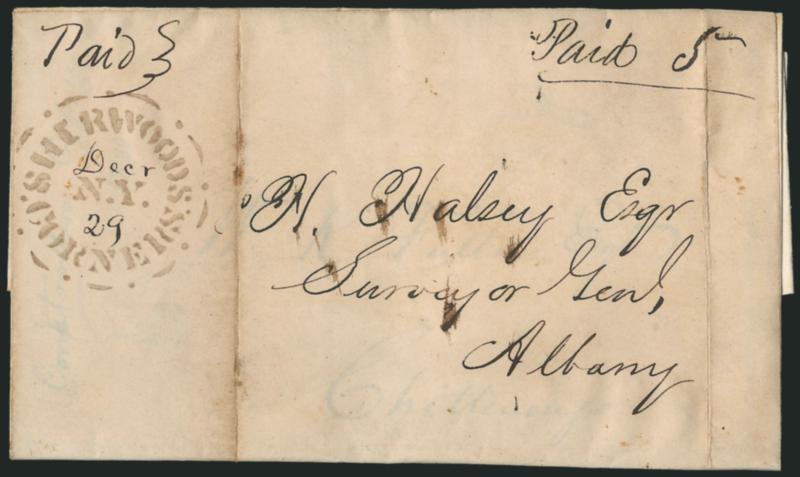 Paid
Paid 5
SHERWOOD'S CORNERS
Decr
N.Y.
29
H. Halsey Esqr
Surveyor Genl,
Albany